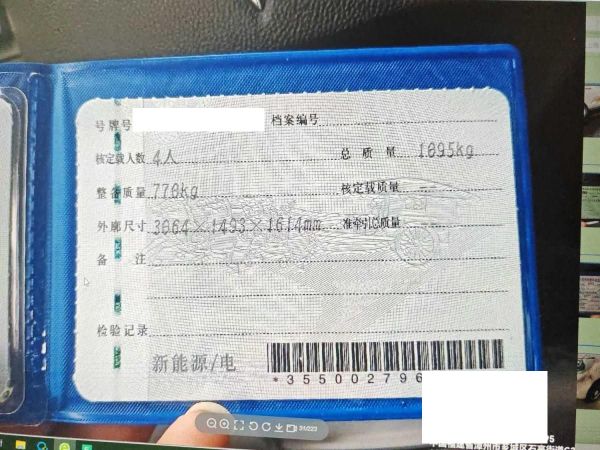 号牌号 档案编号
核定载人数 4人 总质量 1095kg
整备质量 770kg 核定载质量 --
外廓尺寸 3064×1493×1614mm 准牵引总质量 --
备注
检验记录
新能源/电
*355002796
31/223
漳州市芗城区石亭街道